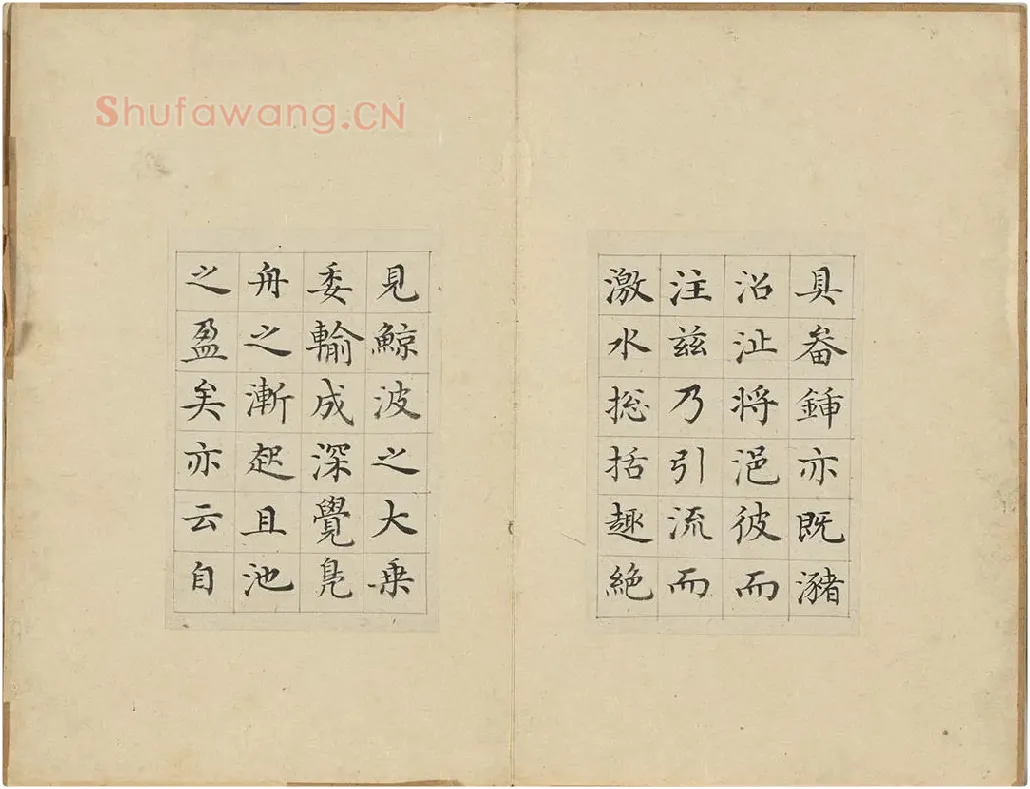 Shufawang.CN
具畚鍾亦既瀦
沼沚将浥彼而
注兹乃引流而
激水捴括趣絶
見鯨波之大乗
委輸成深覺鳬
舟之漸起且池
之盈矣亦云自